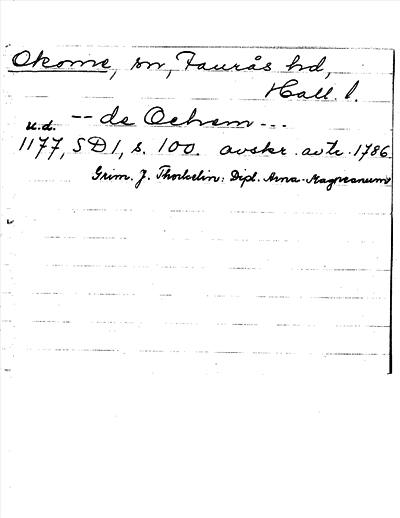 Okome, sn, Faurås hd,
Hall. l.
-- de Ochem ---
u.d.
1177, SD 1, s. 100. avskr. avtr. 1786.
Grim. J. Thorkelin: Dipl. Arna-Magnæanum